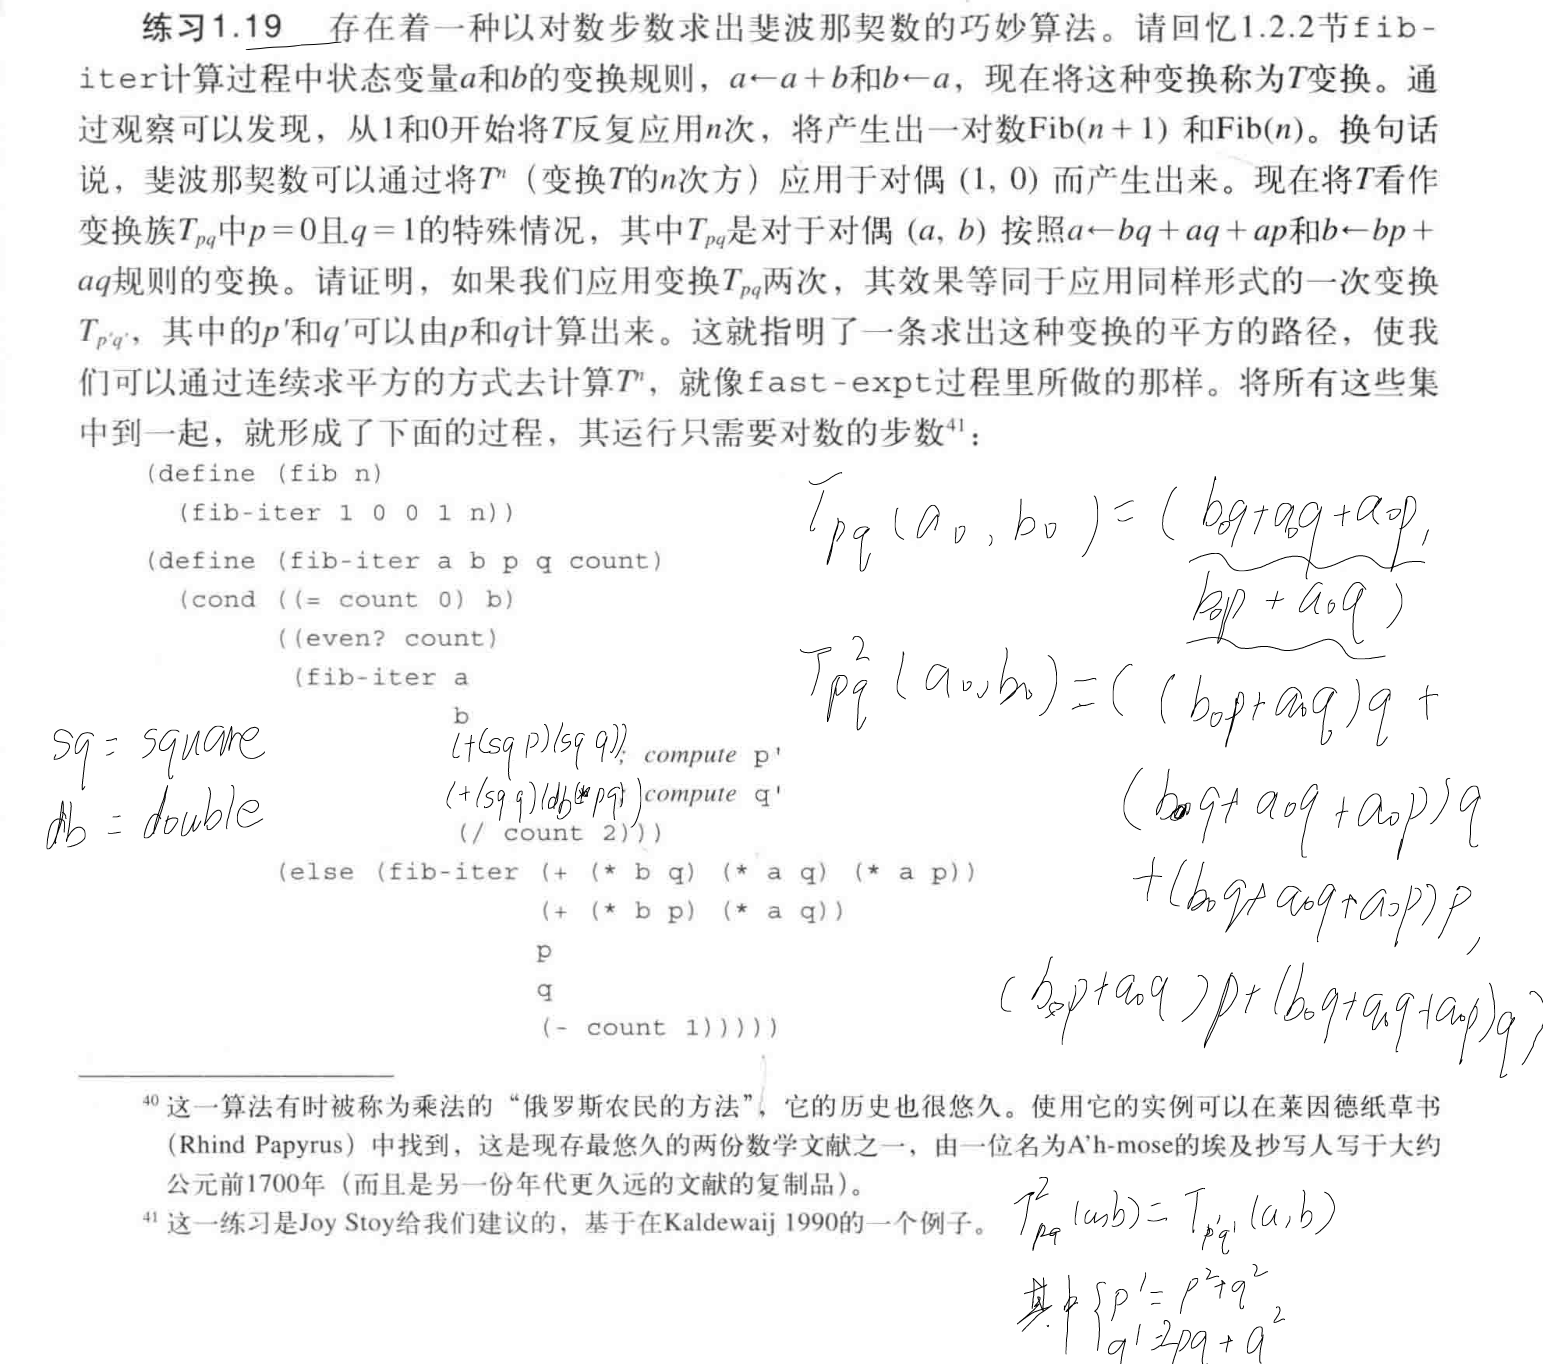 练习1.19 存在着一种以对数步数求出斐波那契数的巧妙算法。请回忆1.2.2节fib-
iter计算过程中状态变量a和b的变换规则，a←a+b和b←a，现在将这种变换称为T变换。通
过观察可以发现，从1和0开始将T反复应用n次，将产生出一对数Fib(n+1) 和Fib(n)。换句话
说，斐波那契数可以通过将Tⁿ（变换T的n次方）应用于对偶 (1, 0) 而产生出来。现在将T看作
变换族Tpq中p=0且q=1的特殊情况，其中Tpq是对于对偶 (a, b) 按照a←bq+aq+ap和b←bp+
aq规则的变换。请证明，如果我们应用变换Tpq两次，其效果等同于应用同样形式的一次变换
Tp'q'，其中的p'和q'可以由p和q计算出来。这就指明了一条求出这种变换的平方的路径，使我
们可以通过连续求平方的方式去计算Tⁿ，就像fast-expt过程里所做的那样。将所有这些集
中到一起，就形成了下面的过程，其运行只需要对数的步数⁴¹：
(define (fib n)
(fib-iter 1 0 0 1 n))
(define (fib-iter a b p q count)
(cond ((= count 0) b)
((even? count)
(fib-iter a
b
(+(sq p)(sq q)); compute p'
(+(sq q)(db(* p q))) compute q'
(/ count 2)))
(else (fib-iter (+ (* b q) (* a q) (* a p))
(+ (* b p) (* a q))
p
q
(- count 1)))))
sq = square
db = double
Tpq (a₀, b₀) = (b₀q+a₀q+a₀p,
b₀p + a₀q)
T²pq (a₀, b₀) = ( (b₀p+a₀q)q +
(b₀q+a₀q+a₀p)q
+(b₀q+a₀q+a₀p)p,
(b₀p+a₀q)p+(b₀q+a₀q+a₀p)q)
⁴⁰ 这一算法有时被称为乘法的“俄罗斯农民的方法”，它的历史也很悠久。使用它的实例可以在莱因德纸草书
(Rhind Papyrus) 中找到，这是现存最悠久的两份数学文献之一，由一位名为A'h-mose的埃及抄写人写于大约
公元前1700年（而且是另一份年代更久远的文献的复制品）。
⁴¹ 这一练习是Joy Stoy给我们建议的，基于在Kaldewaij 1990的一个例子。
T²pq (a,b) = Tp'q' (a,b)
其中 { p' = p²+q²
q' = 2pq + q²